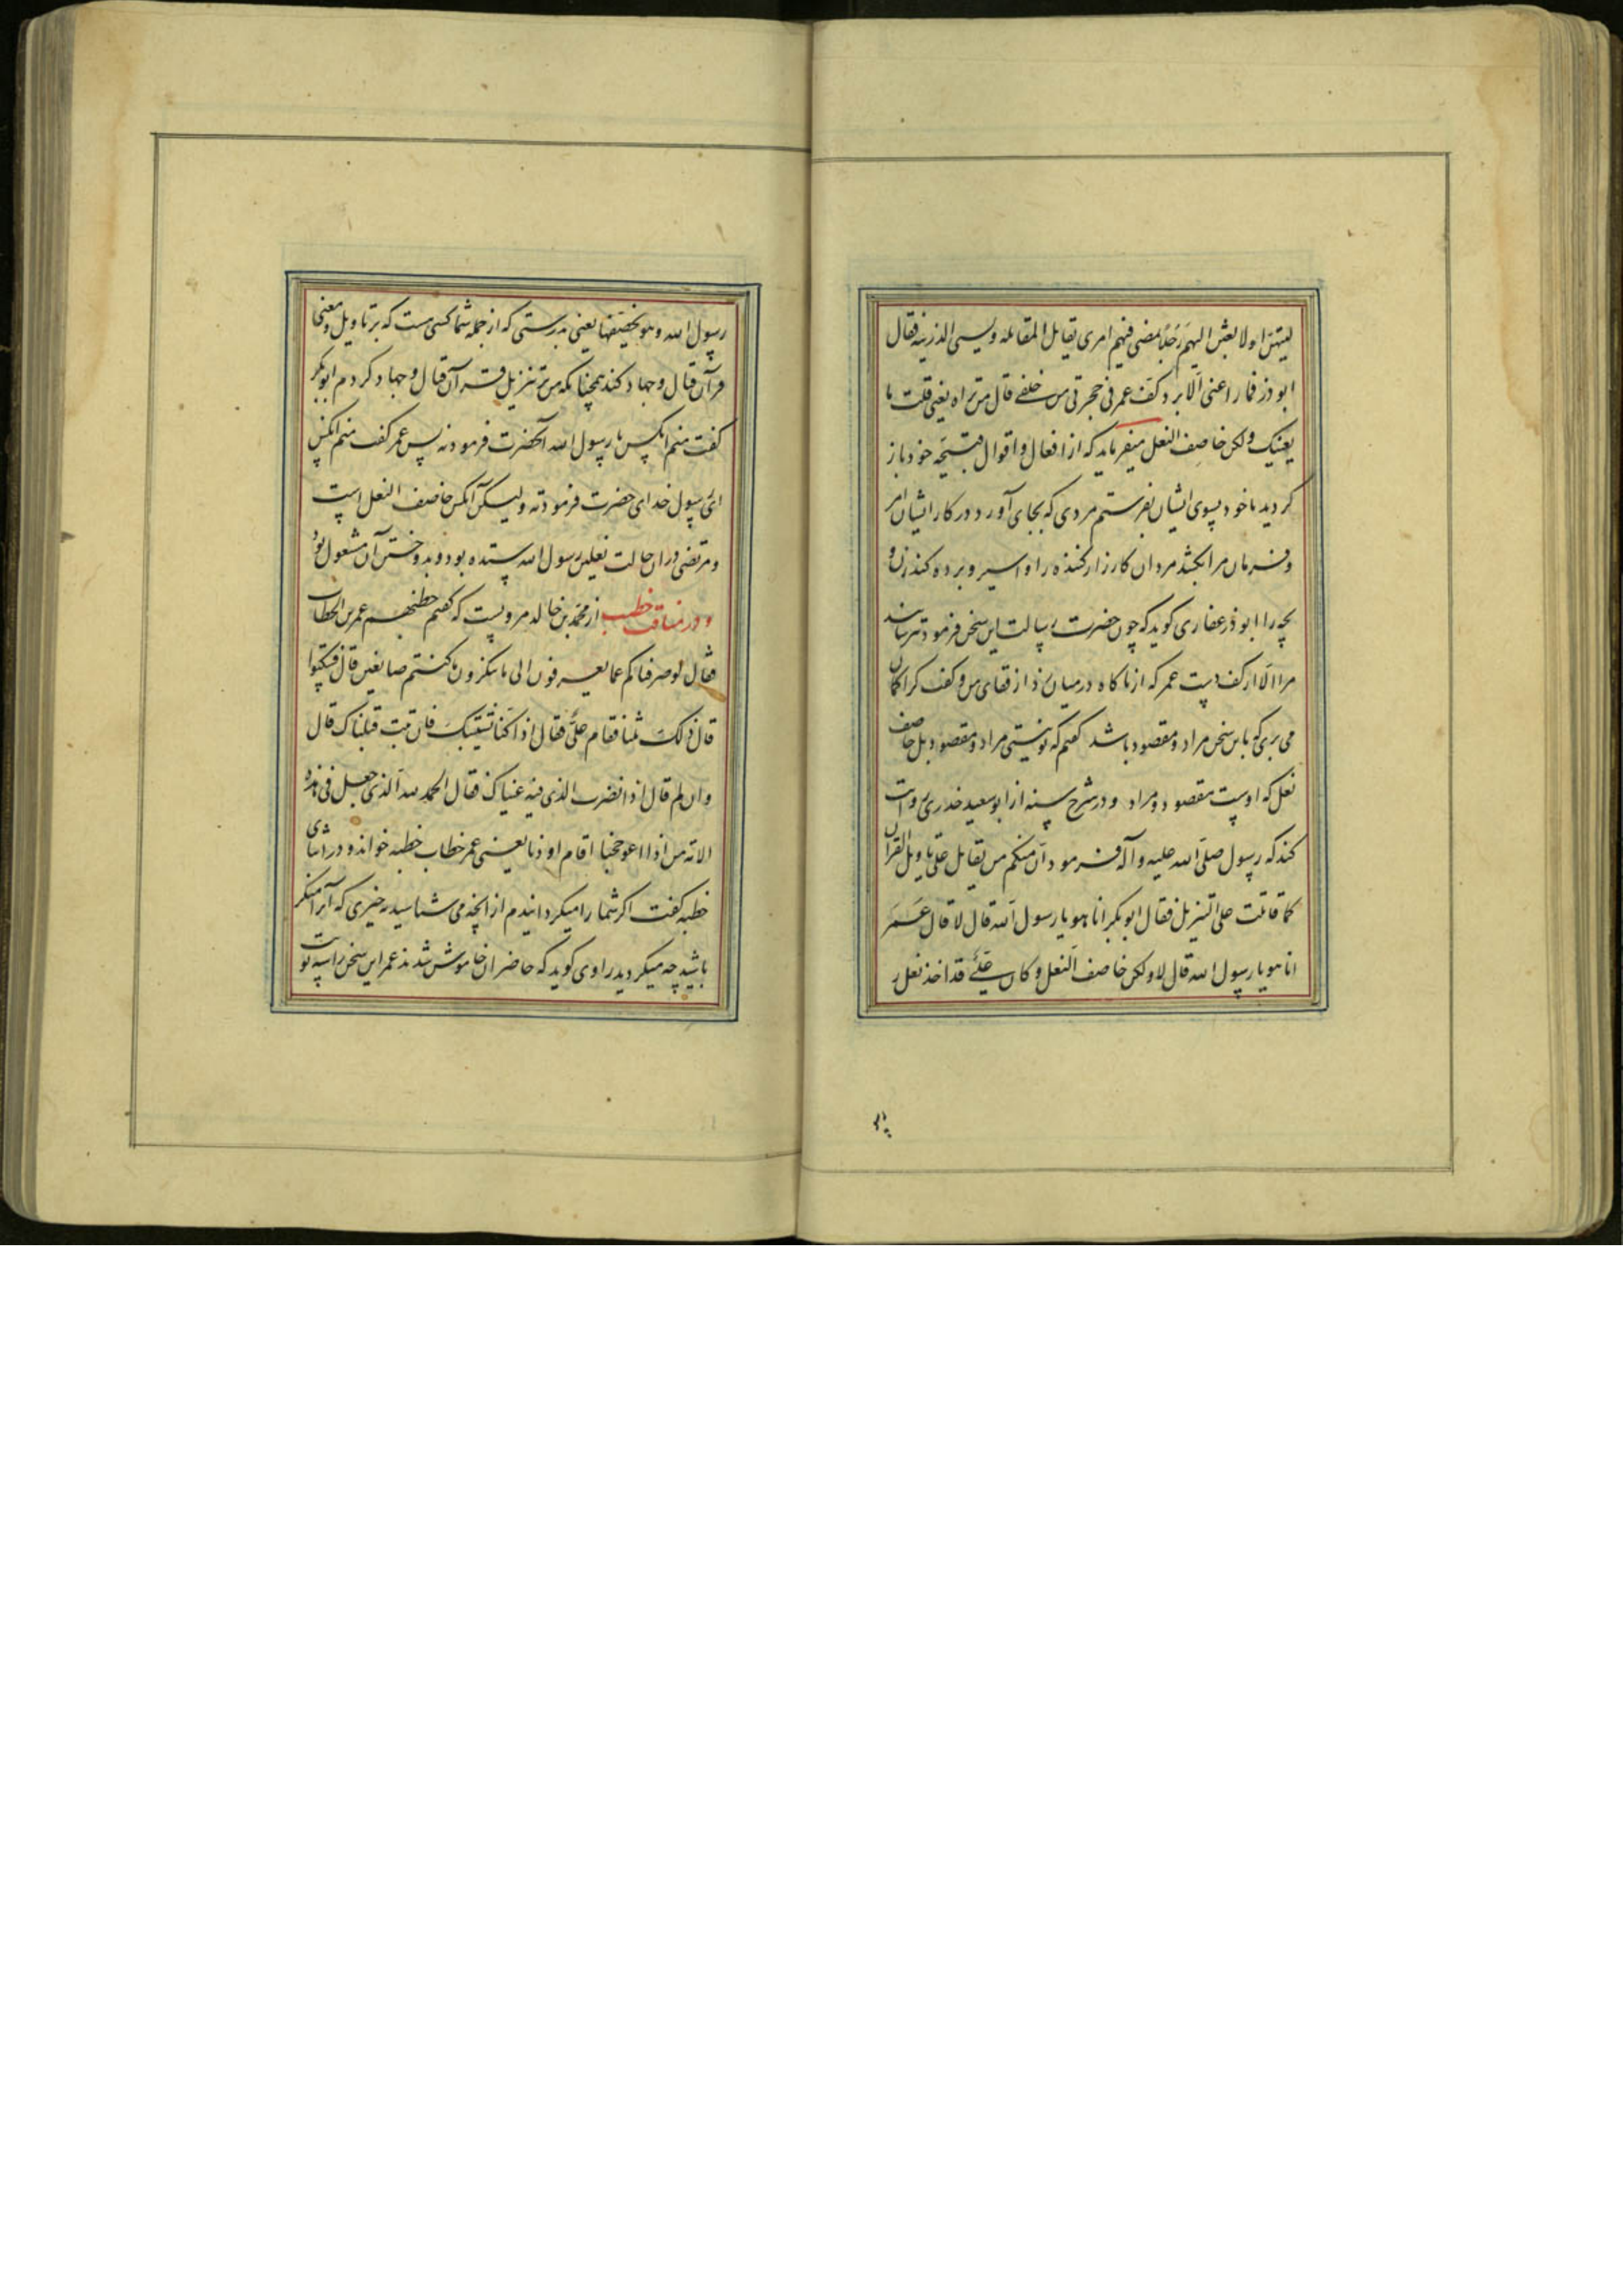 لینتهن او لابعثن الیهم رجلا یمضی فیهم امری یقاتل المقاتله ویسبی الذریه فقال
ابو ذر فما راعنی الا برد کف عمر فی حجرتی من خلفی قال من تراه یعنی قلت ما
یعنیک ولکن خاصف النعل میفرماید که از افعال و اقوال قبیحه خود باز
کردید تا خود بسوی ایشان بفرستم مردی که بجای آورد در کار ایشان امر
و فرمان مرا بکشد مردان کارزار کننده را و اسیر و برده کند زن و
بچه را ابو ذر غفاری کوید که چون حضرت رسالت این سخن فرمود نترسانید
مرا الا از کف دست عمر که از ناکاه در میان زد از قفای من و کفت کرا کمان
می بری که باین سخن مراد و مقصود باشد کفتم که تو نیستی مراد و مقصود بل خاصف
نعل که اوست مقصود و مراد و در شرح سنه از ابو سعید خدری روایت
کند که رسول صلی الله علیه و آله فرمود ان منکم من یقاتل علی تاویل القرآن
کما قاتلت علی التنزیل فقال ابو بکر انا هو یا رسول الله قال لا قال عمر
انا هو یا رسول الله قال لا ولکن خاصف النعل و کان علی قد اخذ نعل
رسول الله و هو یخصفها یعنی بدرستی که از جمله شما کسی هست که بر تاویل و معنی
قرآن قتال و جهاد کند همچنانکه من بر تنزیل قرآن قتال و جهاد کردم ابو بکر
کفت منم انکس یا رسول الله آنحضرت فرمود نه پس عمر کفت منم انکس
ای رسول خدای حضرت فرمود نه ولیکن آنکس خاصف النعل است
و مرتضی در ان حالت نعلین رسول الله ستده بود و بدوختن آن مشغول بود
و در مناقب خطیب از محمد بن خالد مرویست که کفتم خطبهم عمر بن الخطاب
فقال لو صرفناکم عما یعرفون الی ما ینکرون ما کنتم صانعین قال فسکتوا
قال ذلک ثلثا فقام علی فقال اذا کنا نستتیبک فان تبت قبلناک قال
و ان لم قال اذا نضرب الذی فیه عیناک فقال الحمد لله الذی جعل فی هذه
الامه من اذا اعوججنا اقام اودنا یعنی عمر خطاب خطبه خواند و در اثنای
خطبه کفت اکر شما را میکردانیدم از انچه می شناسید به چیزی که آنرا منکر
باشید چه میکردید راوی کوید که حاضران خاموش شدند عمر این سخن را سه نوبت